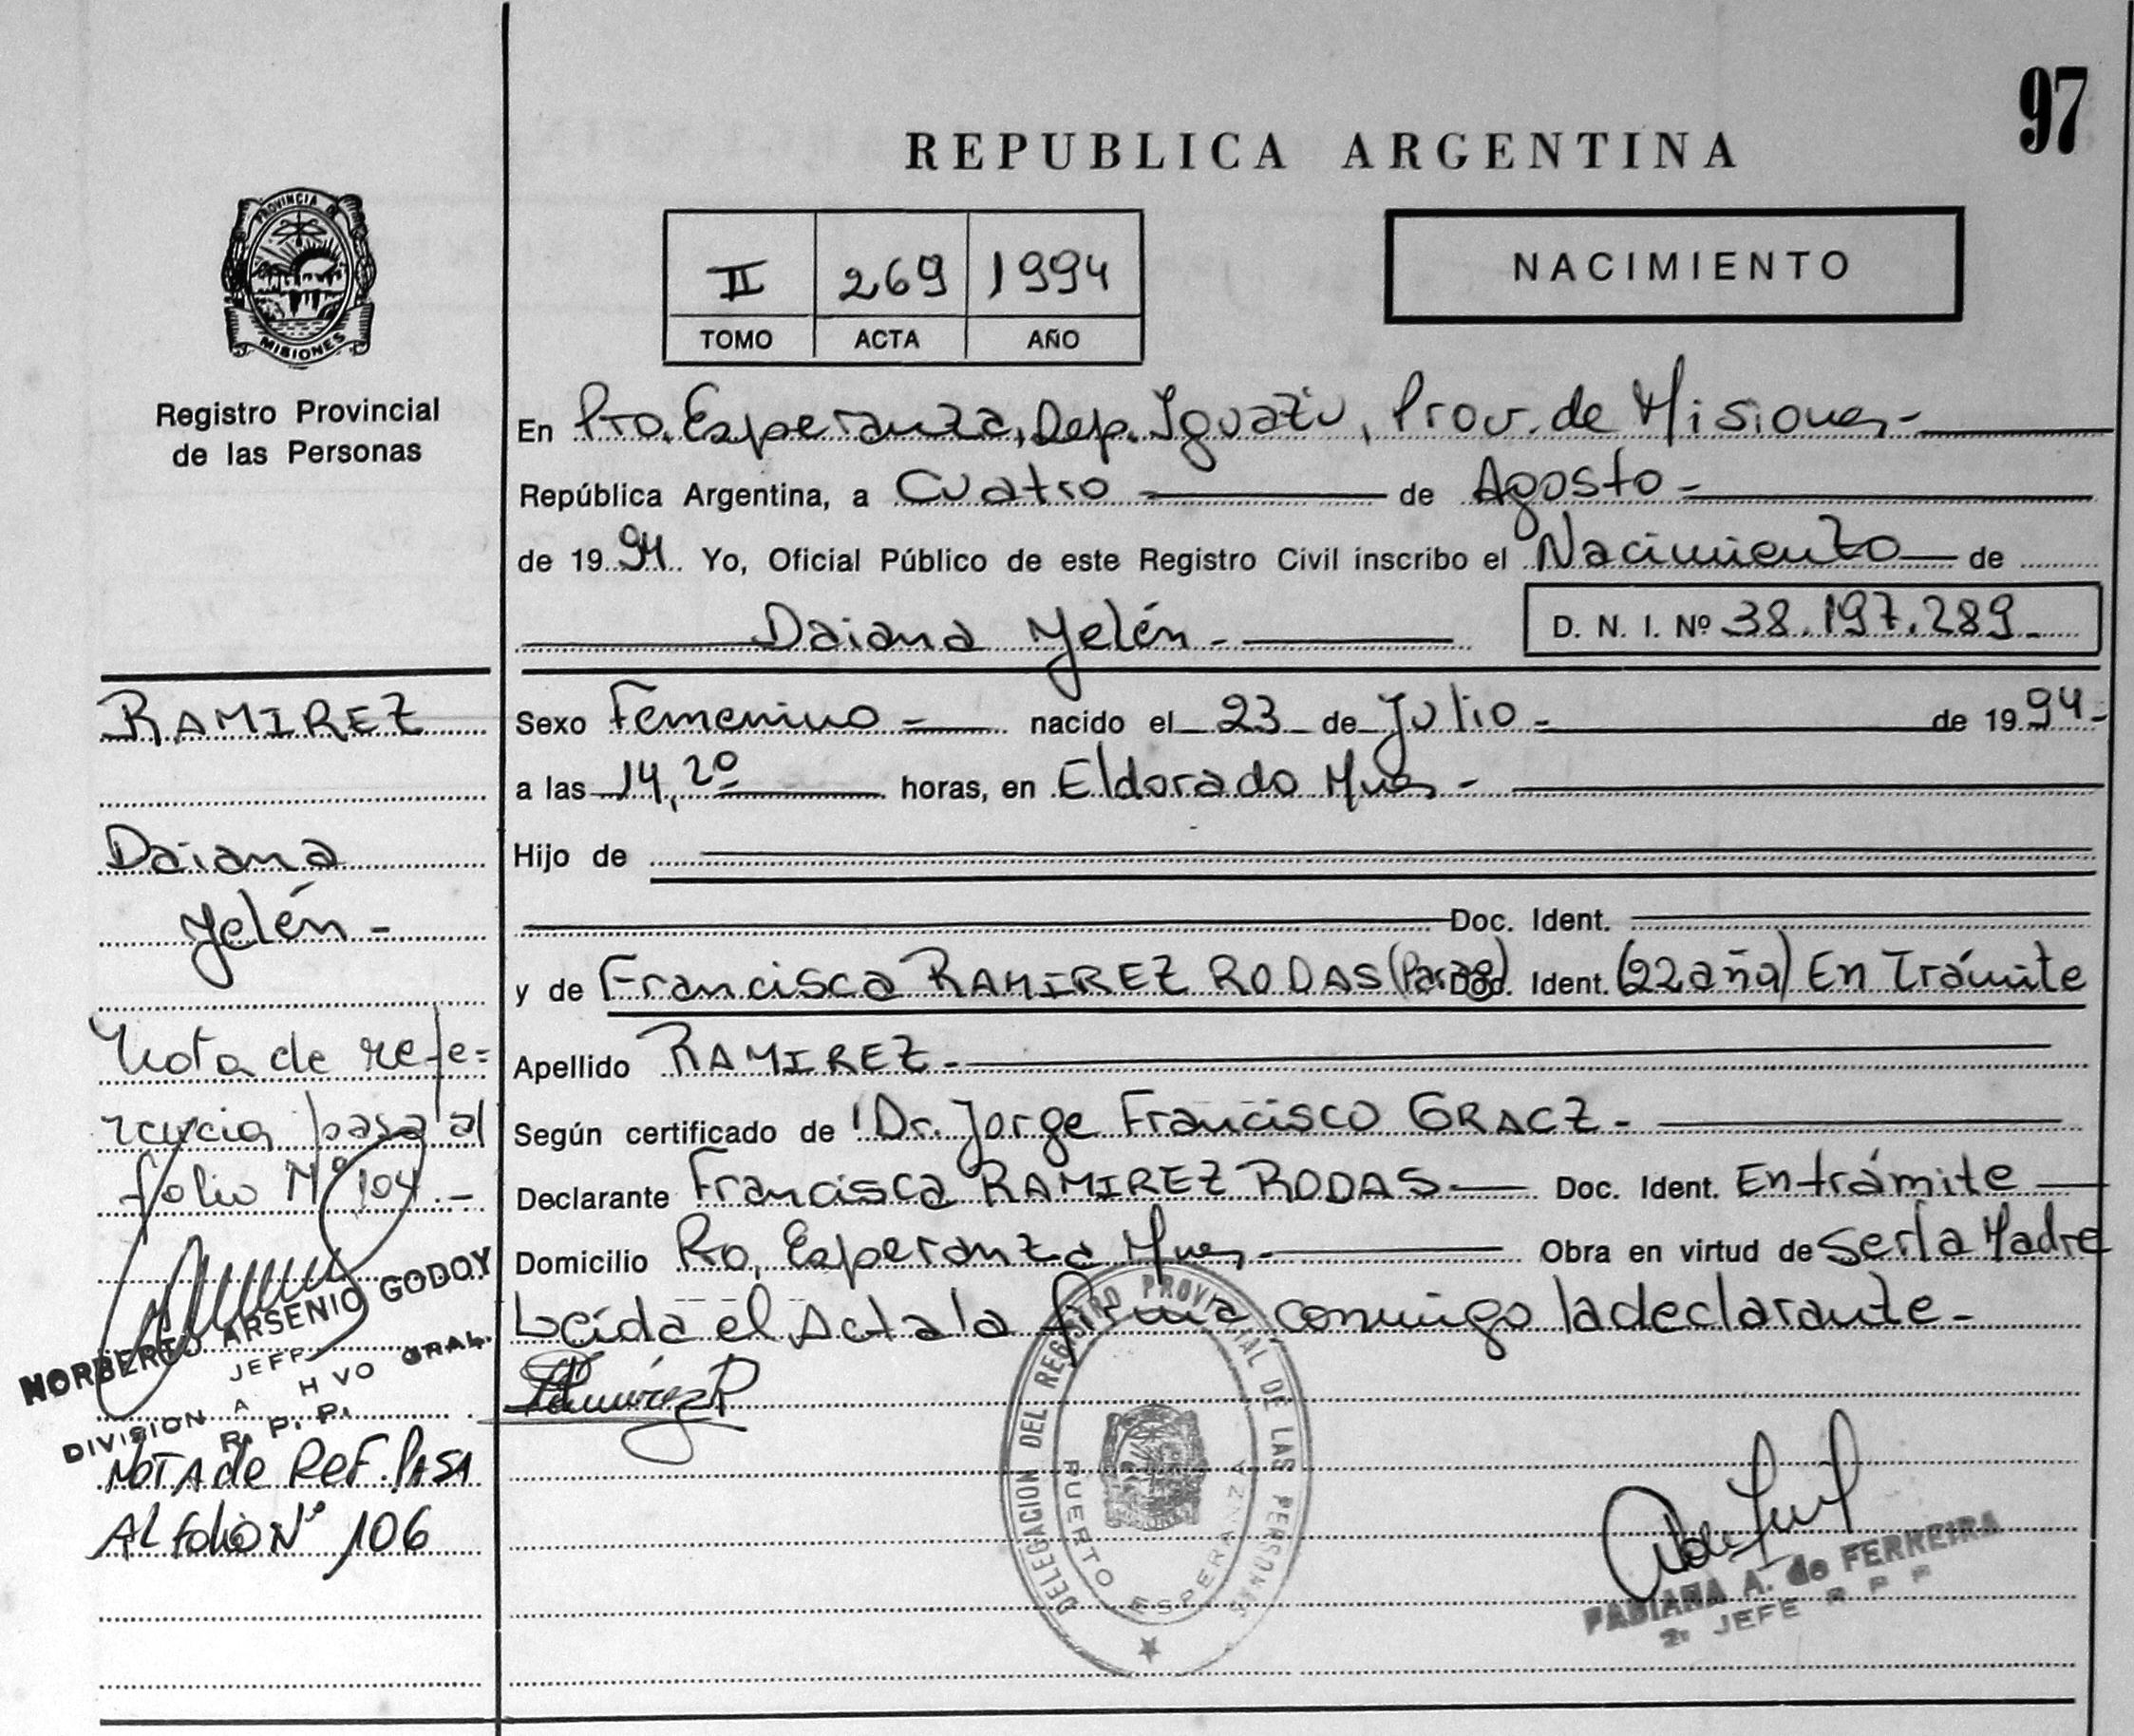 97
REPUBLICA ARGENTINA
PROVINCIA DE
MISIONES
Registro Provincial
de las Personas
II 269 1994
TOMO ACTA AÑO
NACIMIENTO
En Pto. Esperanza, Dep. Iguazú, Prov. de Misiones-
República Argentina, a Cuatro - de Agosto -
de 1994 Yo, Oficial Público de este Registro Civil inscribo el Nacimiento de
Daiana Yelén - D. N. I. Nº 38.197.289-
RAMIREZ
Daiana
Yelén -
Sexo Femenino - nacido el 23 de Julio - de 1994-
a las 14,20 horas, en Eldorado Mnes -
Hijo de
Doc. Ident.
y de Francisca RAMIREZ RODAS (Parag) Doc. Ident. (22 años) En Trámite
Apellido RAMIREZ -
Según certificado de Dr. Jorge Francisco GRACZ -
Declarante Francisca RAMIREZ RODAS - Doc. Ident. En trámite
Domicilio Pto. Esperanza Mnes - Obra en virtud de Ser la Madre
Leída el Acta la firma conmigo la declarante -
Nota de refe=
rencia pasa al
folio Nº 104.-
NORBERTO ARSENIO GODOY
JEFE
DIVISION A H VO GRAL.
R. P. P.
NOTA de REF. PASA
AL folio Nº 106
Ramirez R
DELEGACION DEL REGISTRO PROVINCIAL DE LAS PERSONAS
PUERTO ESPERANZA
FABIANA A. de FERREIRA
2º JEFE R P P